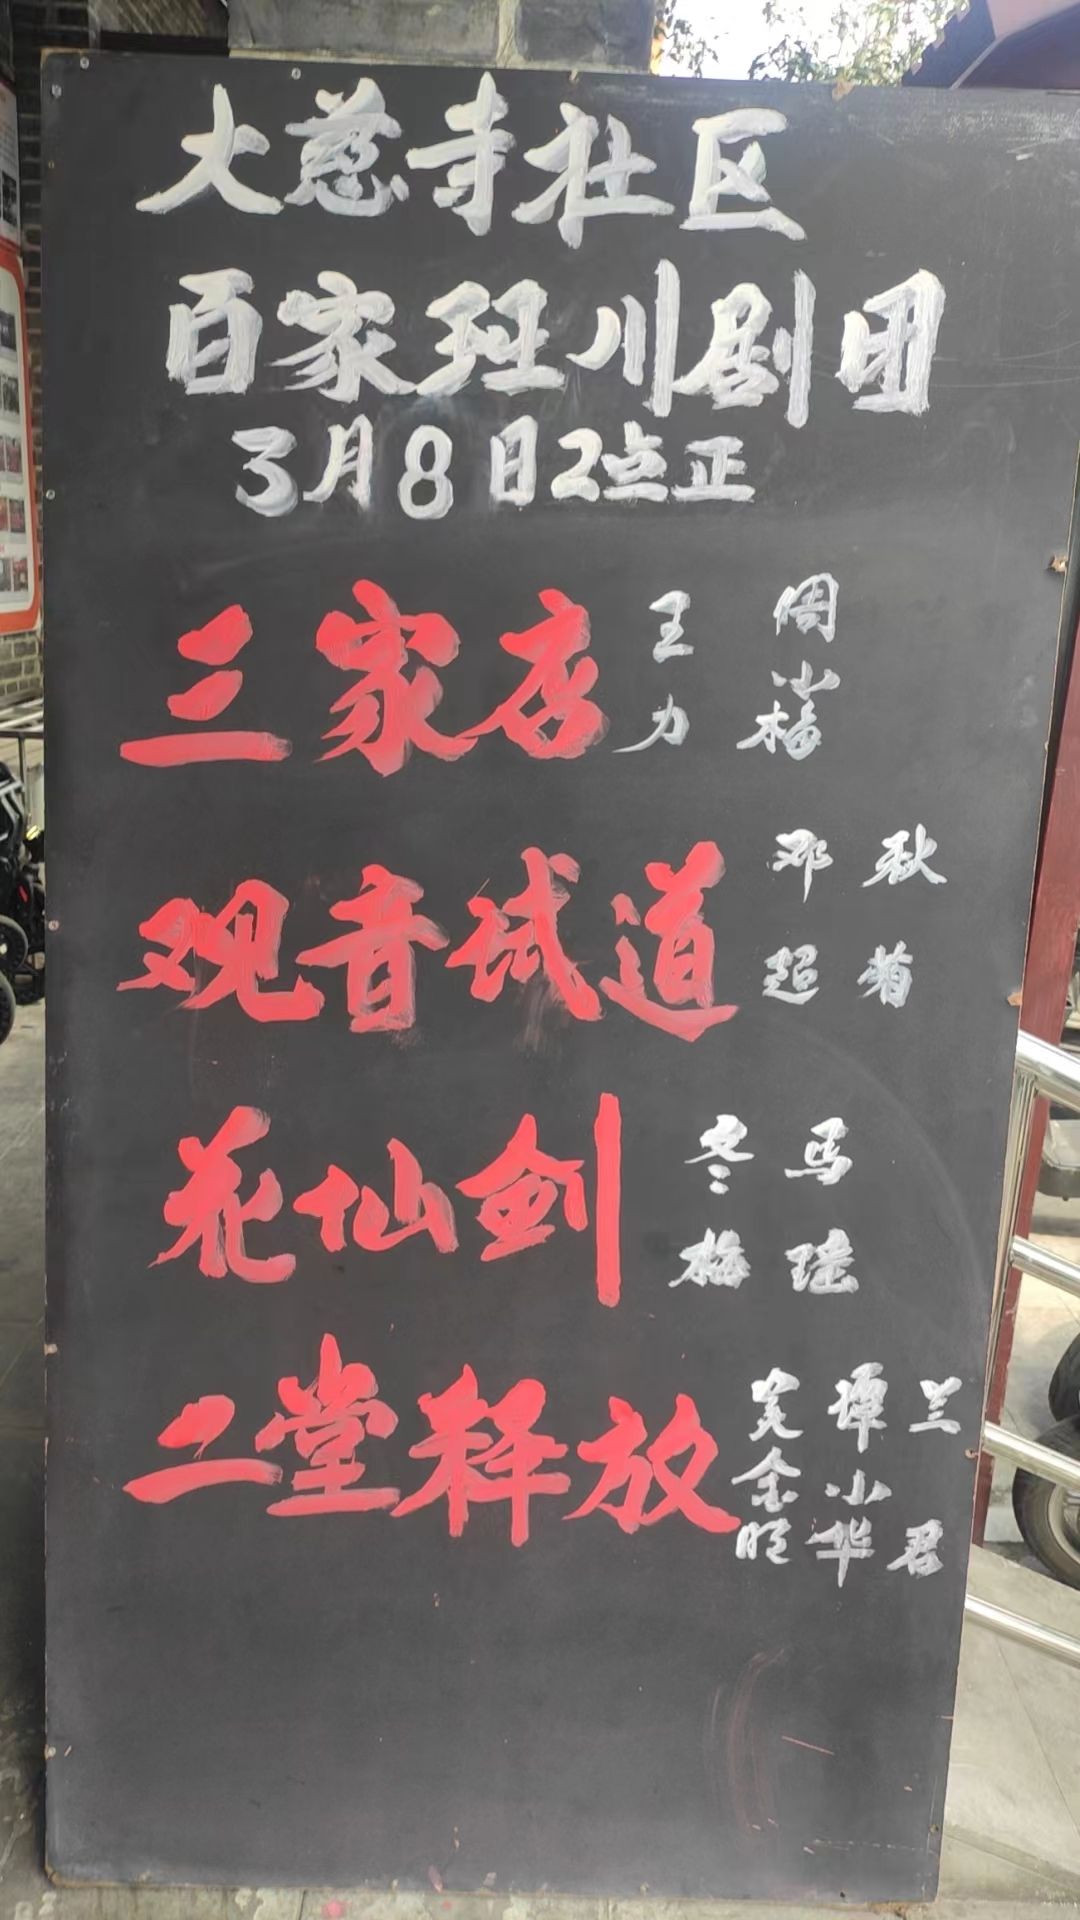 大慈寺社区
百家班川剧团
3月8日2点正
三家店 王力 周小杨
观音试道 邓超 秋菊
花仙剑 冬梅 马瑶
二堂释放 余明 谭小华 兰君